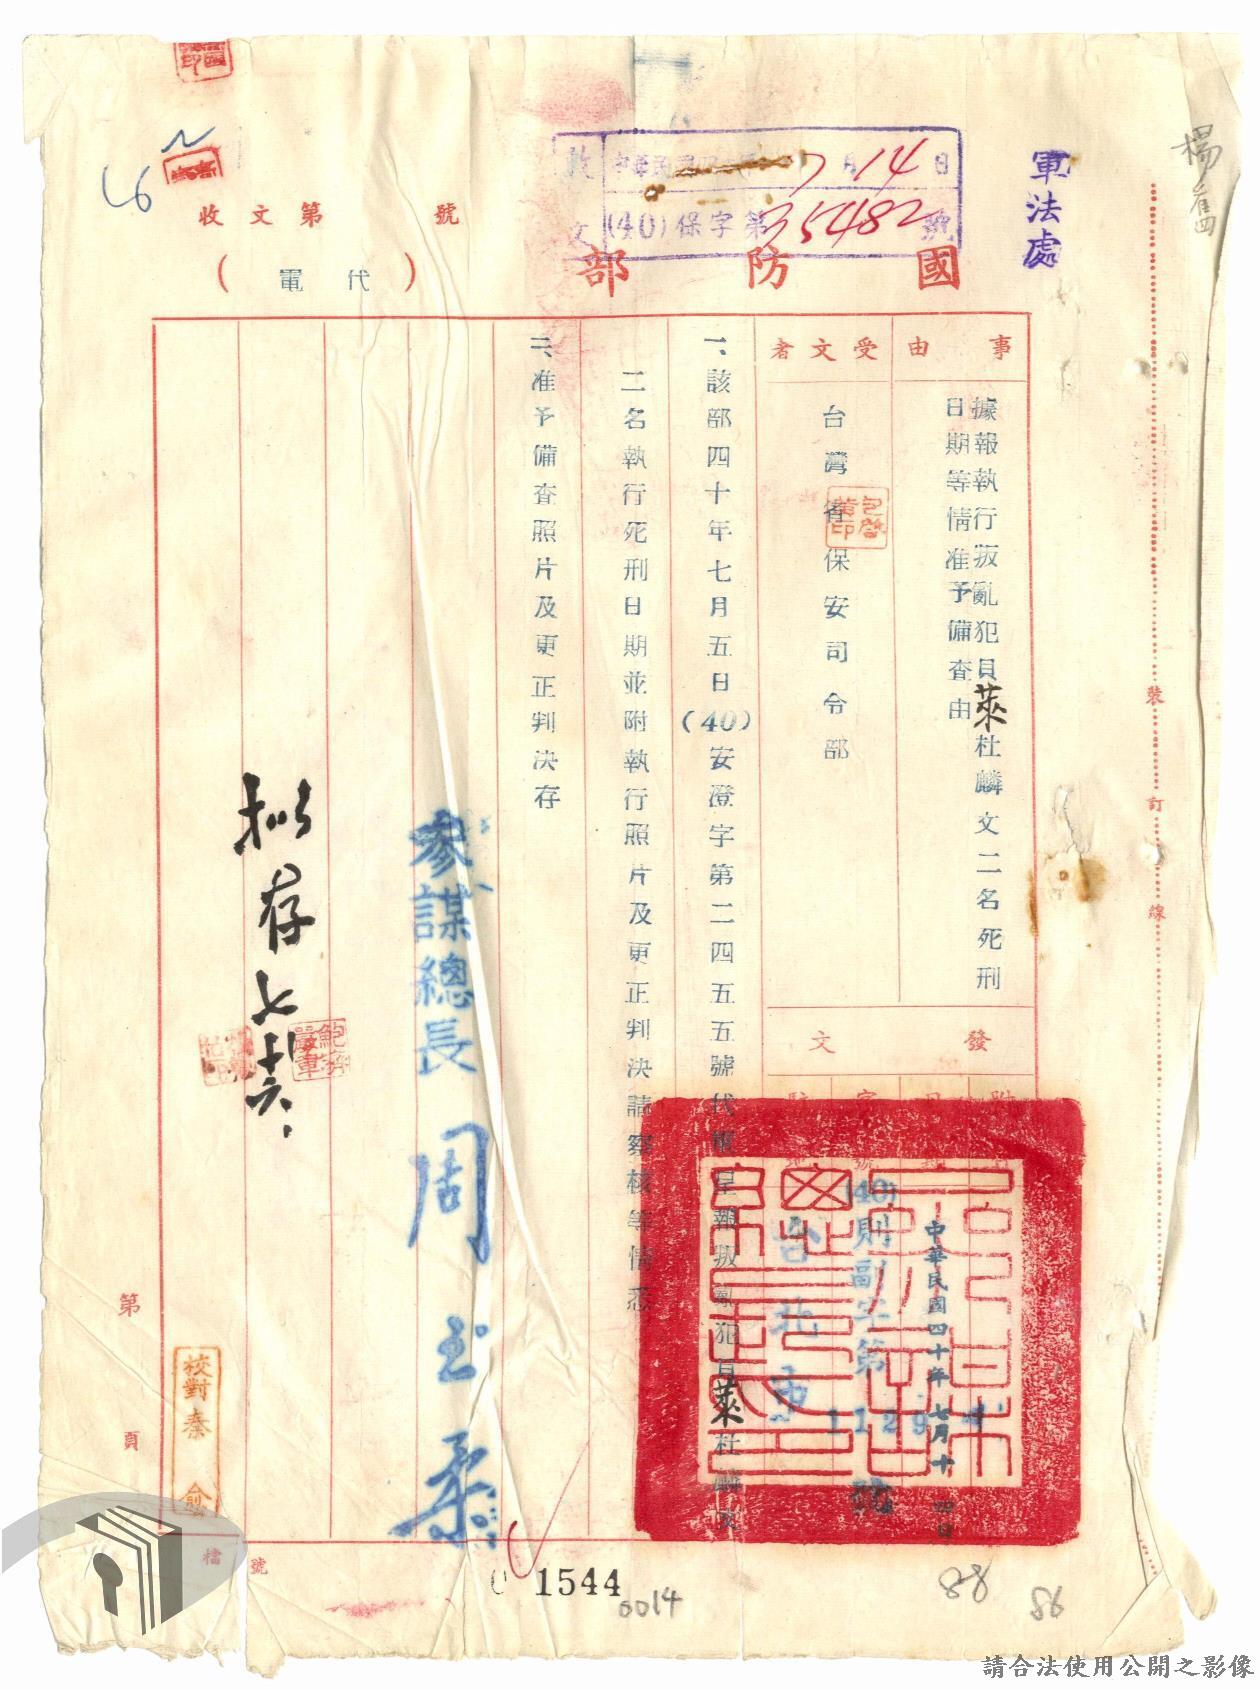 楊
軍法處
收文
中華民國四 年7月14日
(40)保字第35482號
國防部
(代電)
收文第 號
事由
據報執行叛亂犯員萊杜麟文二名死刑
日期等情准予備查由
受文者
台灣省保安司令部
發文
中華民國四十年七月十四日
(40)則副字第1129 號
台北市
一、該部四十年七月五日(40)安澄字第二四五五號代電呈報叛亂犯員萊杜麟文
二名執行死刑日期並附執行照片及更正判決請察核等情悉
二、准予備查照片及更正判決存
參謀總長 周至柔
擬存 七 十六
校對秦
裝
訂
線
第 頁
檔 號
1544
0014
88
86
請合法使用公開之影像